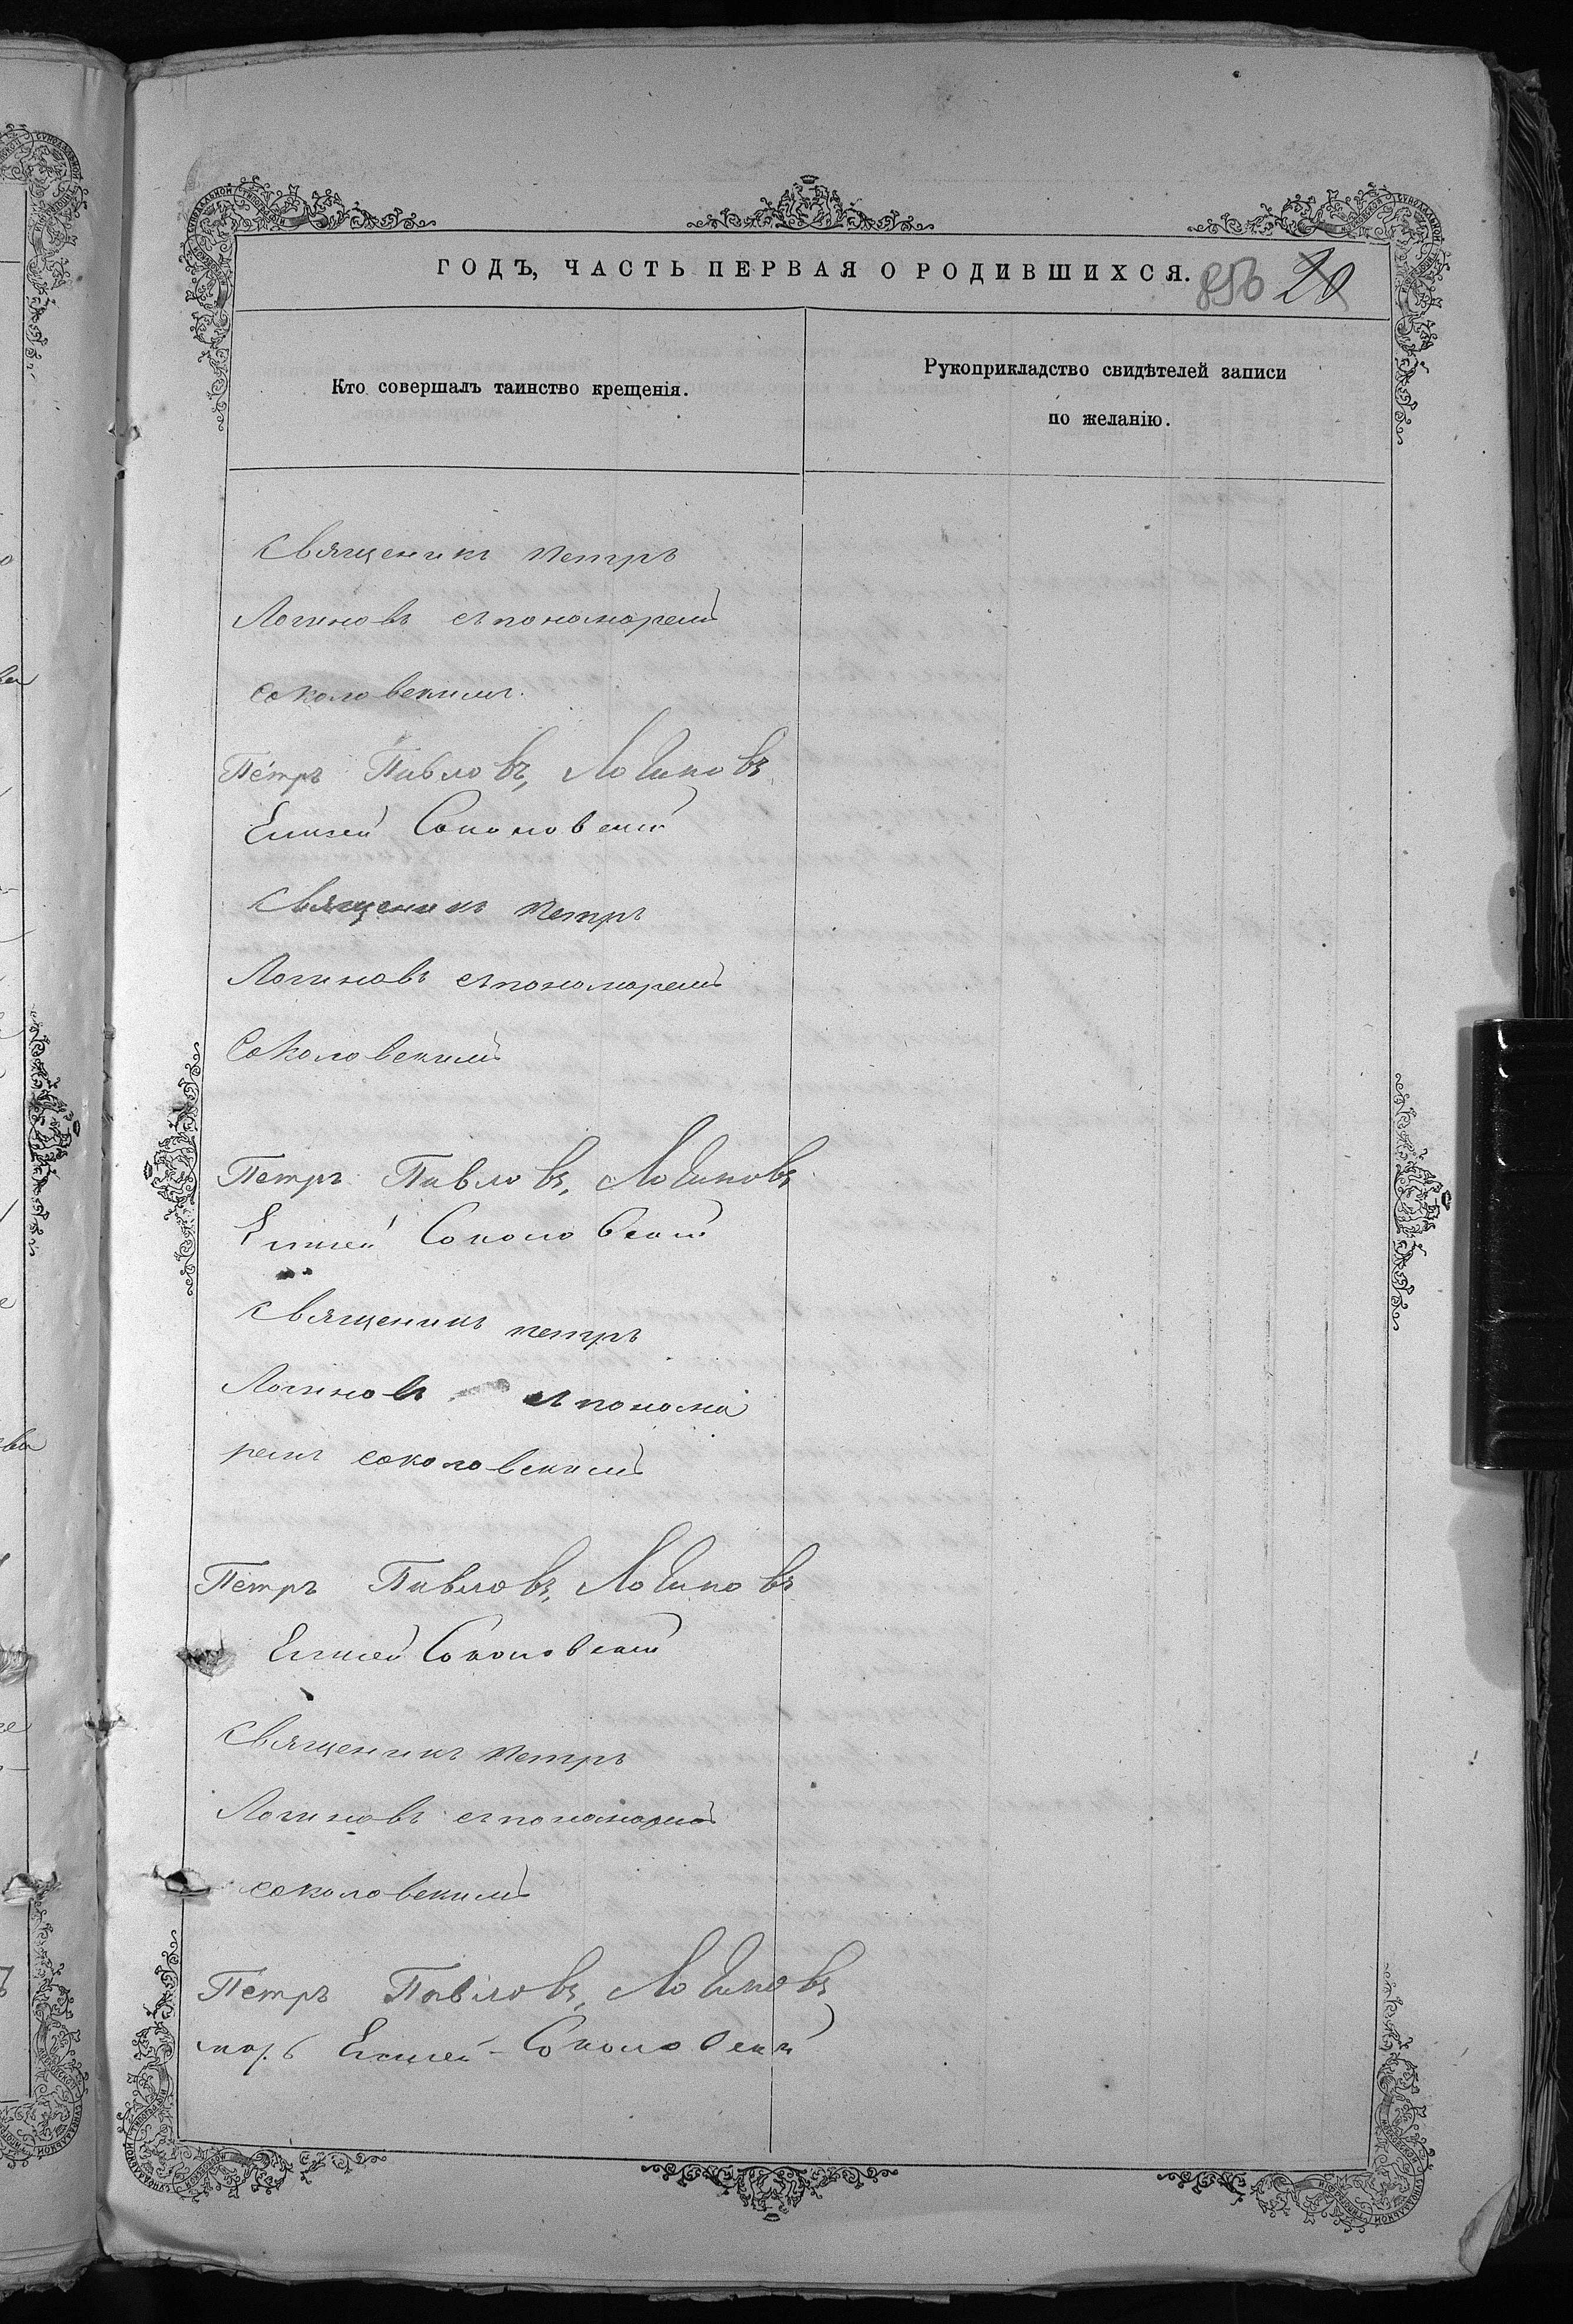 ГОДЪ, ЧАСТЬ ПЕРВАЯ О РОДИВШИХСЯ.
20
Кто совершалъ таинство крещенія.
Рукоприкладство свидѣтелей записи
по желанію.
Священикъ Петръ
Логиновъ съ пономаремъ
Соколовскимъ.
Петръ Павловъ, Логиновъ
Елисей Соколовский
Священикъ Петръ
Логиновъ съ пономаремъ
Соколовскимъ
Петръ Павловъ, Логиновъ
Елисей Соколовский
Священикъ Петръ
Логиновъ съ понома
ремъ Соколовскимъ
Петръ Павловъ, Логиновъ
Елисей Соколовский
Священикъ Петръ
Логиновъ съ пономаремъ
Соколовскимъ
Петръ Павловъ, Логиновъ
Елисей Соколовский